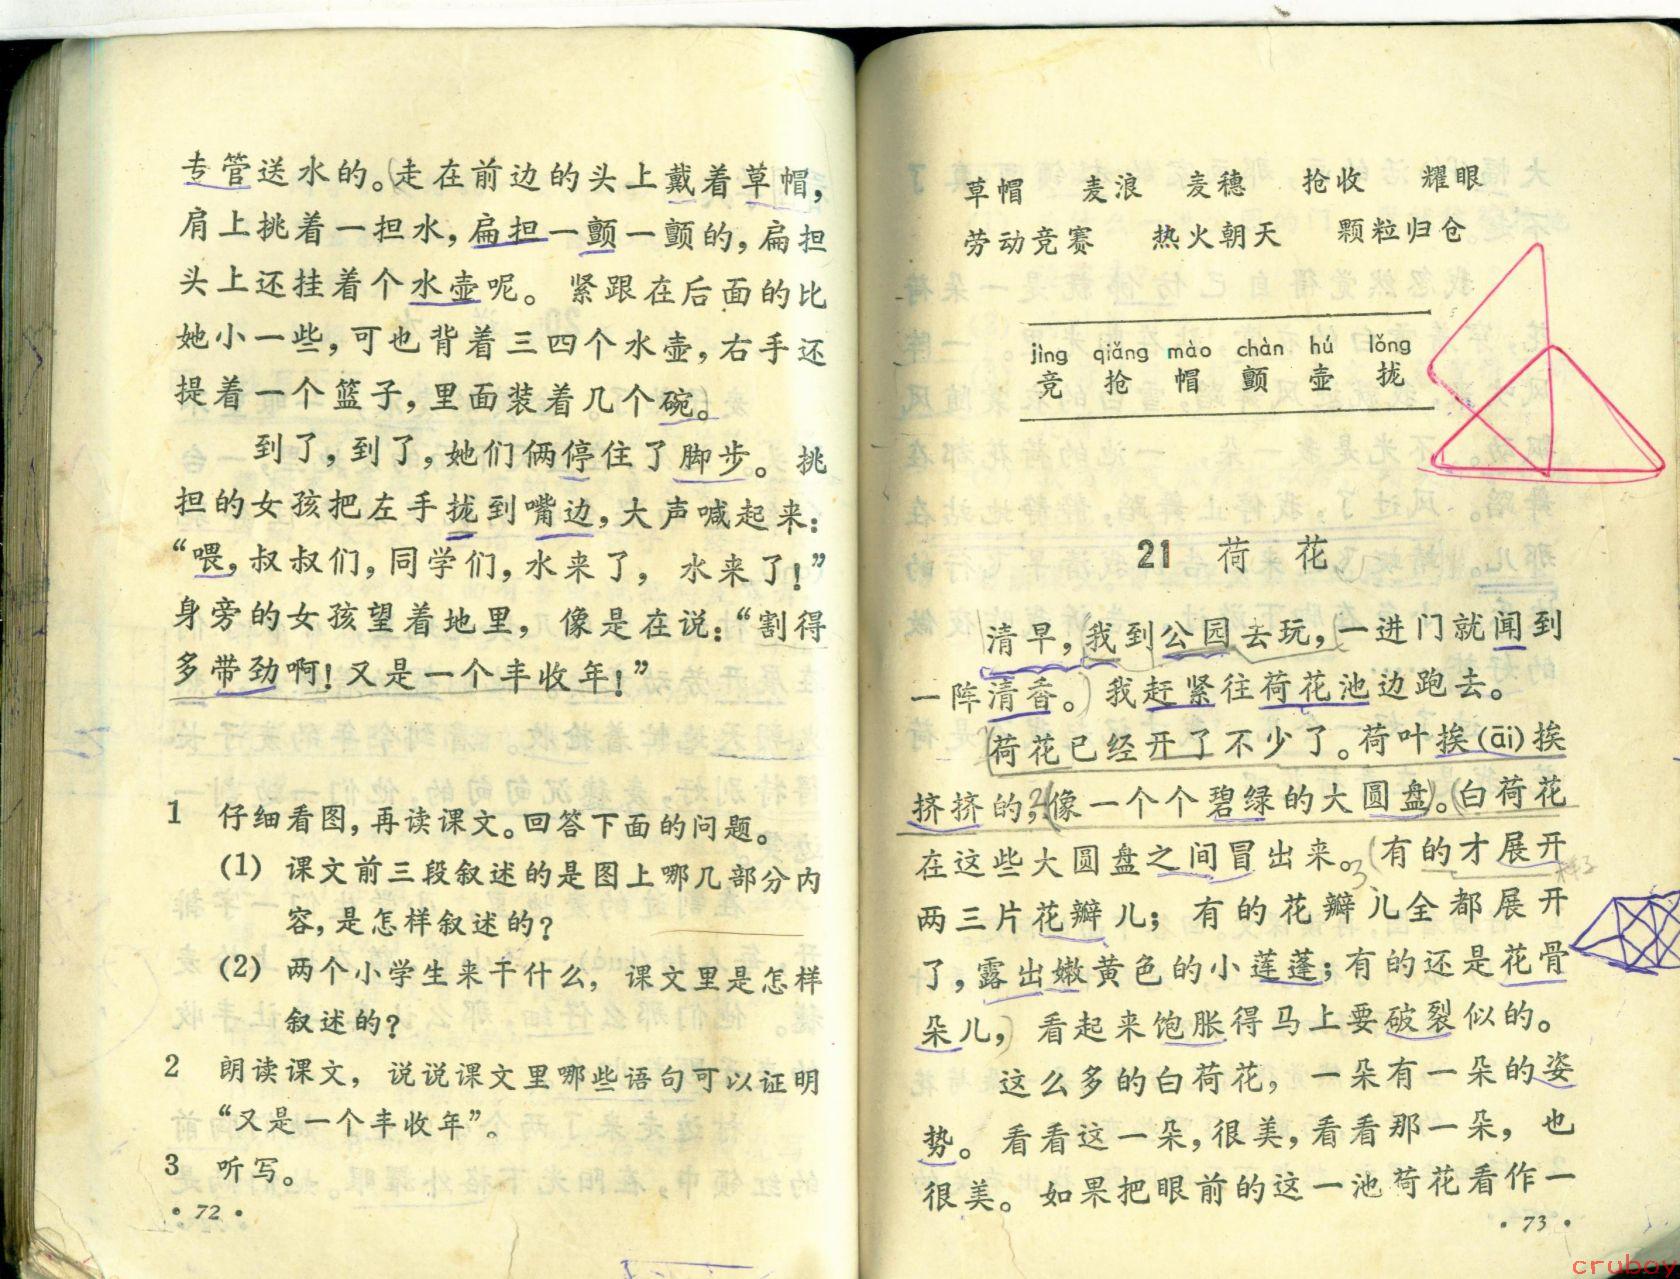 专管送水的。走在前边的头上戴着草帽，
肩上挑着一担水，扁担一颤一颤的，扁担
头上还挂着个水壶呢。紧跟在后面的比
她小一些，可也背着三四个水壶，右手还
提着一个篮子，里面装着几个碗。
到了，到了，她们俩停住了脚步。挑
担的女孩把左手拢到嘴边，大声喊起来：
“喂，叔叔们，同学们，水来了，水来了！”
身旁的女孩望着地里，像是在说：“割得
多带劲啊！又是一个丰收年！”
1 仔细看图，再读课文。回答下面的问题。
(1) 课文前三段叙述的是图上哪几部分内
容，是怎样叙述的？
(2) 两个小学生来干什么，课文里是怎样
叙述的？
2 朗读课文，说说课文里哪些语句可以证明
“又是一个丰收年”。
3 听写。
· 72 ·
草帽 麦浪 麦穗 抢收 耀眼
劳动竞赛 热火朝天 颗粒归仓
jìng qiǎng mào chàn hú lǒng
竞 抢 帽 颤 壶 拢
21 荷花
清早，我到公园去玩，一进门就闻到
一阵清香。我赶紧往荷花池边跑去。
荷花已经开了不少了。荷叶挨(āi)挨
挤挤的，像一个个碧绿的大圆盘。白荷花
在这些大圆盘之间冒出来。有的才展开
两三片花瓣儿；有的花瓣儿全都展开
了，露出嫩黄色的小莲蓬；有的还是花骨
朵儿，看起来饱胀得马上要破裂似的。
这么多的白荷花，一朵有一朵的姿
势。看看这一朵，很美，看看那一朵，也
很美。如果把眼前的这一池荷花看作一
· 73 ·
cruboy